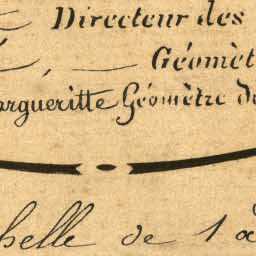 Directeur des
Géomèt
argueritte Géomètre d
helle de 1 à